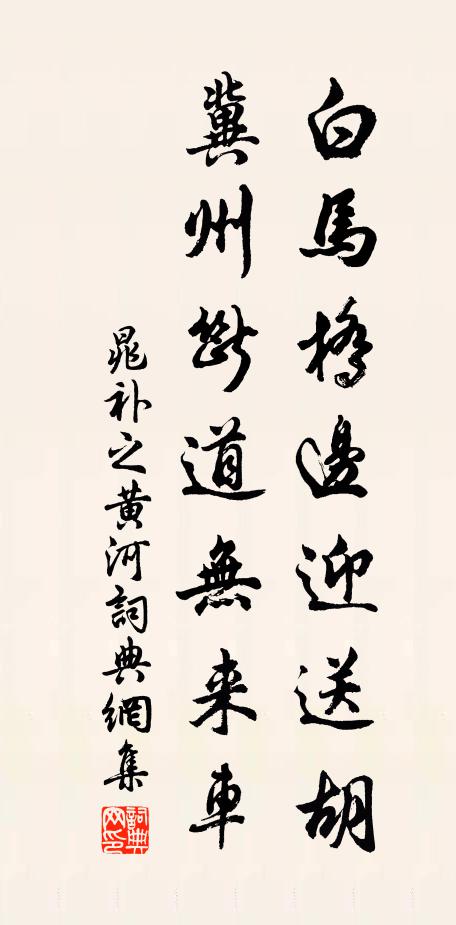 白馬橋邊迎送胡
冀州斷道無来車
晁补之黄河詞典網集
詞典
网印